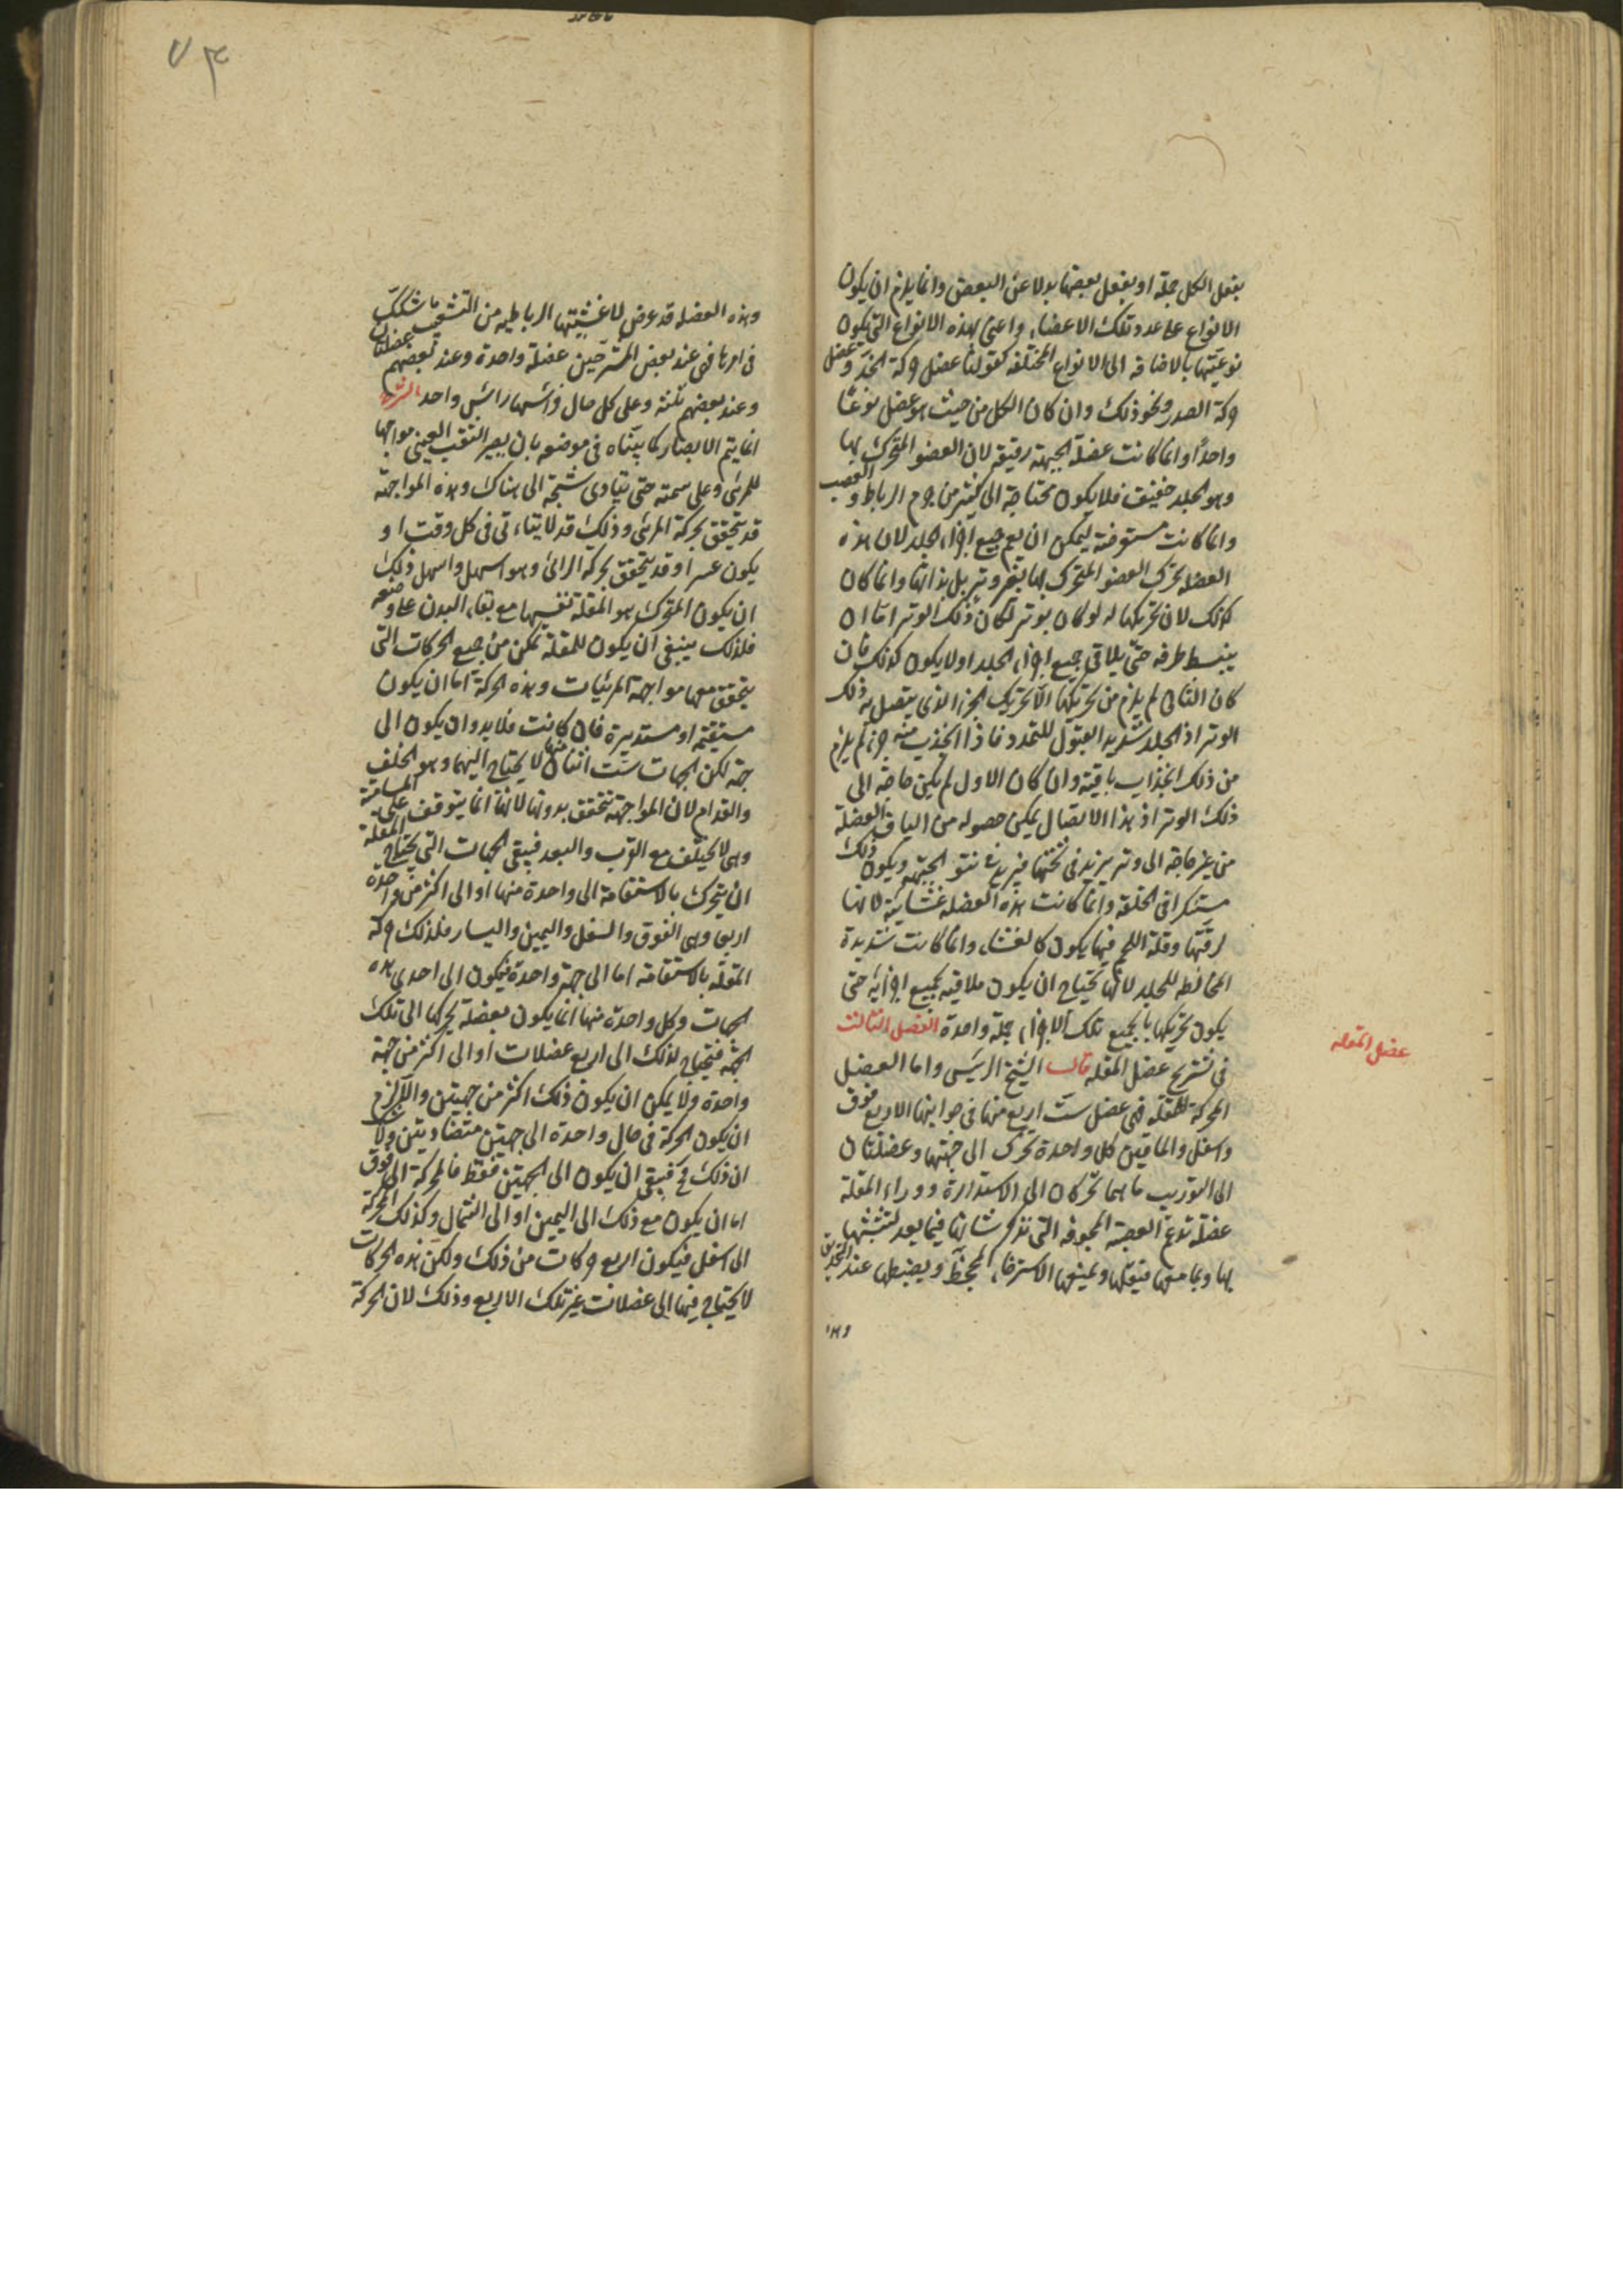 يفعل الكل جملة او يفعل بعضها بدلا عن البعض وانما يلزم ان يكون
الانواع على عدد تلك الاعضاء واعنى بهذه الانواع التى يكون
نوعيتها بالاضافة الى الانواع المختلفة كقولنا عضل حركة الخد وعضل
حركة الصدر ونحو ذلك وان كان الكل من حيث هو عضل نوعا
واحدا وانما كانت عضلة الجبهة رقيقة لان العضو المتحرك بها
وهو الجلد خفيف فلا يكون محتاجة الى كثير من جرم الرباط والعصب
وانما كانت مستعرضة ليمكن ان يعم جميع اجزاء الجلد لان هذه
العضلة تحرك العضو المتحرك بها بغير وتر بل بذاتها وانما كان
كذلك لان تحريكها له لو كان بوتر لكان ذلك الوتر اما ان
ينبسط طرفه حتى يلاقى جميع اجزاء الجلد اولا يكون كذلك فان
كان الثانى لم يلزم من تحريكها الا تحريك الجزء الذى يتصل به ذلك
الوتر اذ الجلد شديد القبول للتمدد فاذا انجذب منه جزء لم يلزم
من ذلك انجذاب باقيه وان كان الاول لم يكن حاجة الى
ذلك الوتر اذ هذا الاتصال يمكن حصوله من الياف العضلة
من غير حاجة الى وتر يزيد فى ثخنها فيزيد فى نتو الجبهة ويكون ذلك
مستنكرا فى الخلقة وانما كانت هذه العضلة غشائية لانها
لرقتها وقلة اللحم فيها يكون كالغشاء وانما كانت شديدة
المخالطة للجلد لانها تحتاج ان يكون ملاقية لجميع اجزايه حتى
يكون تحريكها لجميع تلك الاجزاء جملة واحدة الفصل الثالث
عضل المقلة
فى تشريح عضل المقلة قال الشيخ الرئيس واما العضل
المحركة للمقلة فهى عضل ست اربع منها فى جوانبها الاربع فوق
واسفل والماقين كل واحدة تحرك الى جهتها وعضلتان
الى التوريب ما هما تحركان الى الاستدارة ووراء المقلة
عضلة تدعم العصبة المجوفة التى نذكر شانها فيما بعد لتشبثها
بها وبما معها فيثقلها ويمنعها الاسترخاء المجحظ ويضبطها عند التحديق
وهذه
وهذه العضلة قد عرض لاغشيتها الرباطية من التشعب ما شكك
فى امرها فهى عند بعض المشرحين عضلة واحدة وعند بعضهم عضلتان
وعند بعضهم ثلثة وعلى كل حال فراسها راس واحد الشرح
انما يتم الابصار كما بيناه فى موضعه بان يصير الثقب العينى مواجها
للمرئى وعلى سمته حتى يتادى شبحه الى هناك وهذه المواجهة
قد تتحقق بحركة المرئى وذلك قد لا يتاتى فى كل وقت او
يكون عسرا وقد يتحقق بحركة الرائى وهو اسهل واسهل ذلك
ان يكون المتحرك هو المقلة نفسها مع بقاء البدن على وضعه
فلذلك ينبغى ان يكون للمقلة تمكن من جميع الحركات التى
يتحقق معها مواجهة المرئيات وهذه الحركة اما ان يكون
مستقيمة او مستديرة فان كانت فلا بد وان يكون الى
جهة لكن الجهات ست اثنان منها لا يحتاج اليهما وهو الخلف
والقدام لان المواجهة تتحقق بدونها لانها انما يتوقف على المسامتة
وهى لا تختلف مع القرب والبعد فيبقى الجهات التى يحتاج المقلة
ان يتحرك بالاستقامة الى واحدة منها او الى اكثر من واحدة
اربعا وهى الفوق والسفل واليمين واليسار فلذلك حركة
المقلة بالاستقامة اما الى جهة واحدة فيكون الى احدى هذه
الجهات وكل واحدة منها انما يكون بعضلة يحركها الى تلك
الجهة فيحتاج لذلك الى اربع عضلات او الى اكثر من جهة
واحدة ولا يمكن ان يكون ذلك اكثر من جهتين والا لزم
ان يكون الحركة فى حال واحدة الى جهتين متضاديتين ولا شك
ان ذلك مح فيبقى ان يكون الى الجهتين فقط فالحركة الى فوق
اما ان يكون مع ذلك الى اليمين او الى الشمال وكذلك الحركة
الى اسفل فيكون اربع حركات من ذلك ولكن هذه الحركات
لا يحتاج فيها الى عضلات غير تلك الاربع وذلك لان الحركة